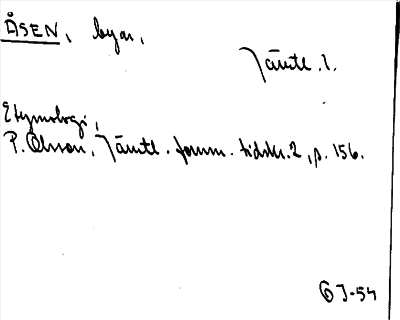 ÅSEN, byar,
Jämtl. l.
Etymologi,
P. Olsson, Jämtl. fornm. tidskr. 2, p. 156.
J-54